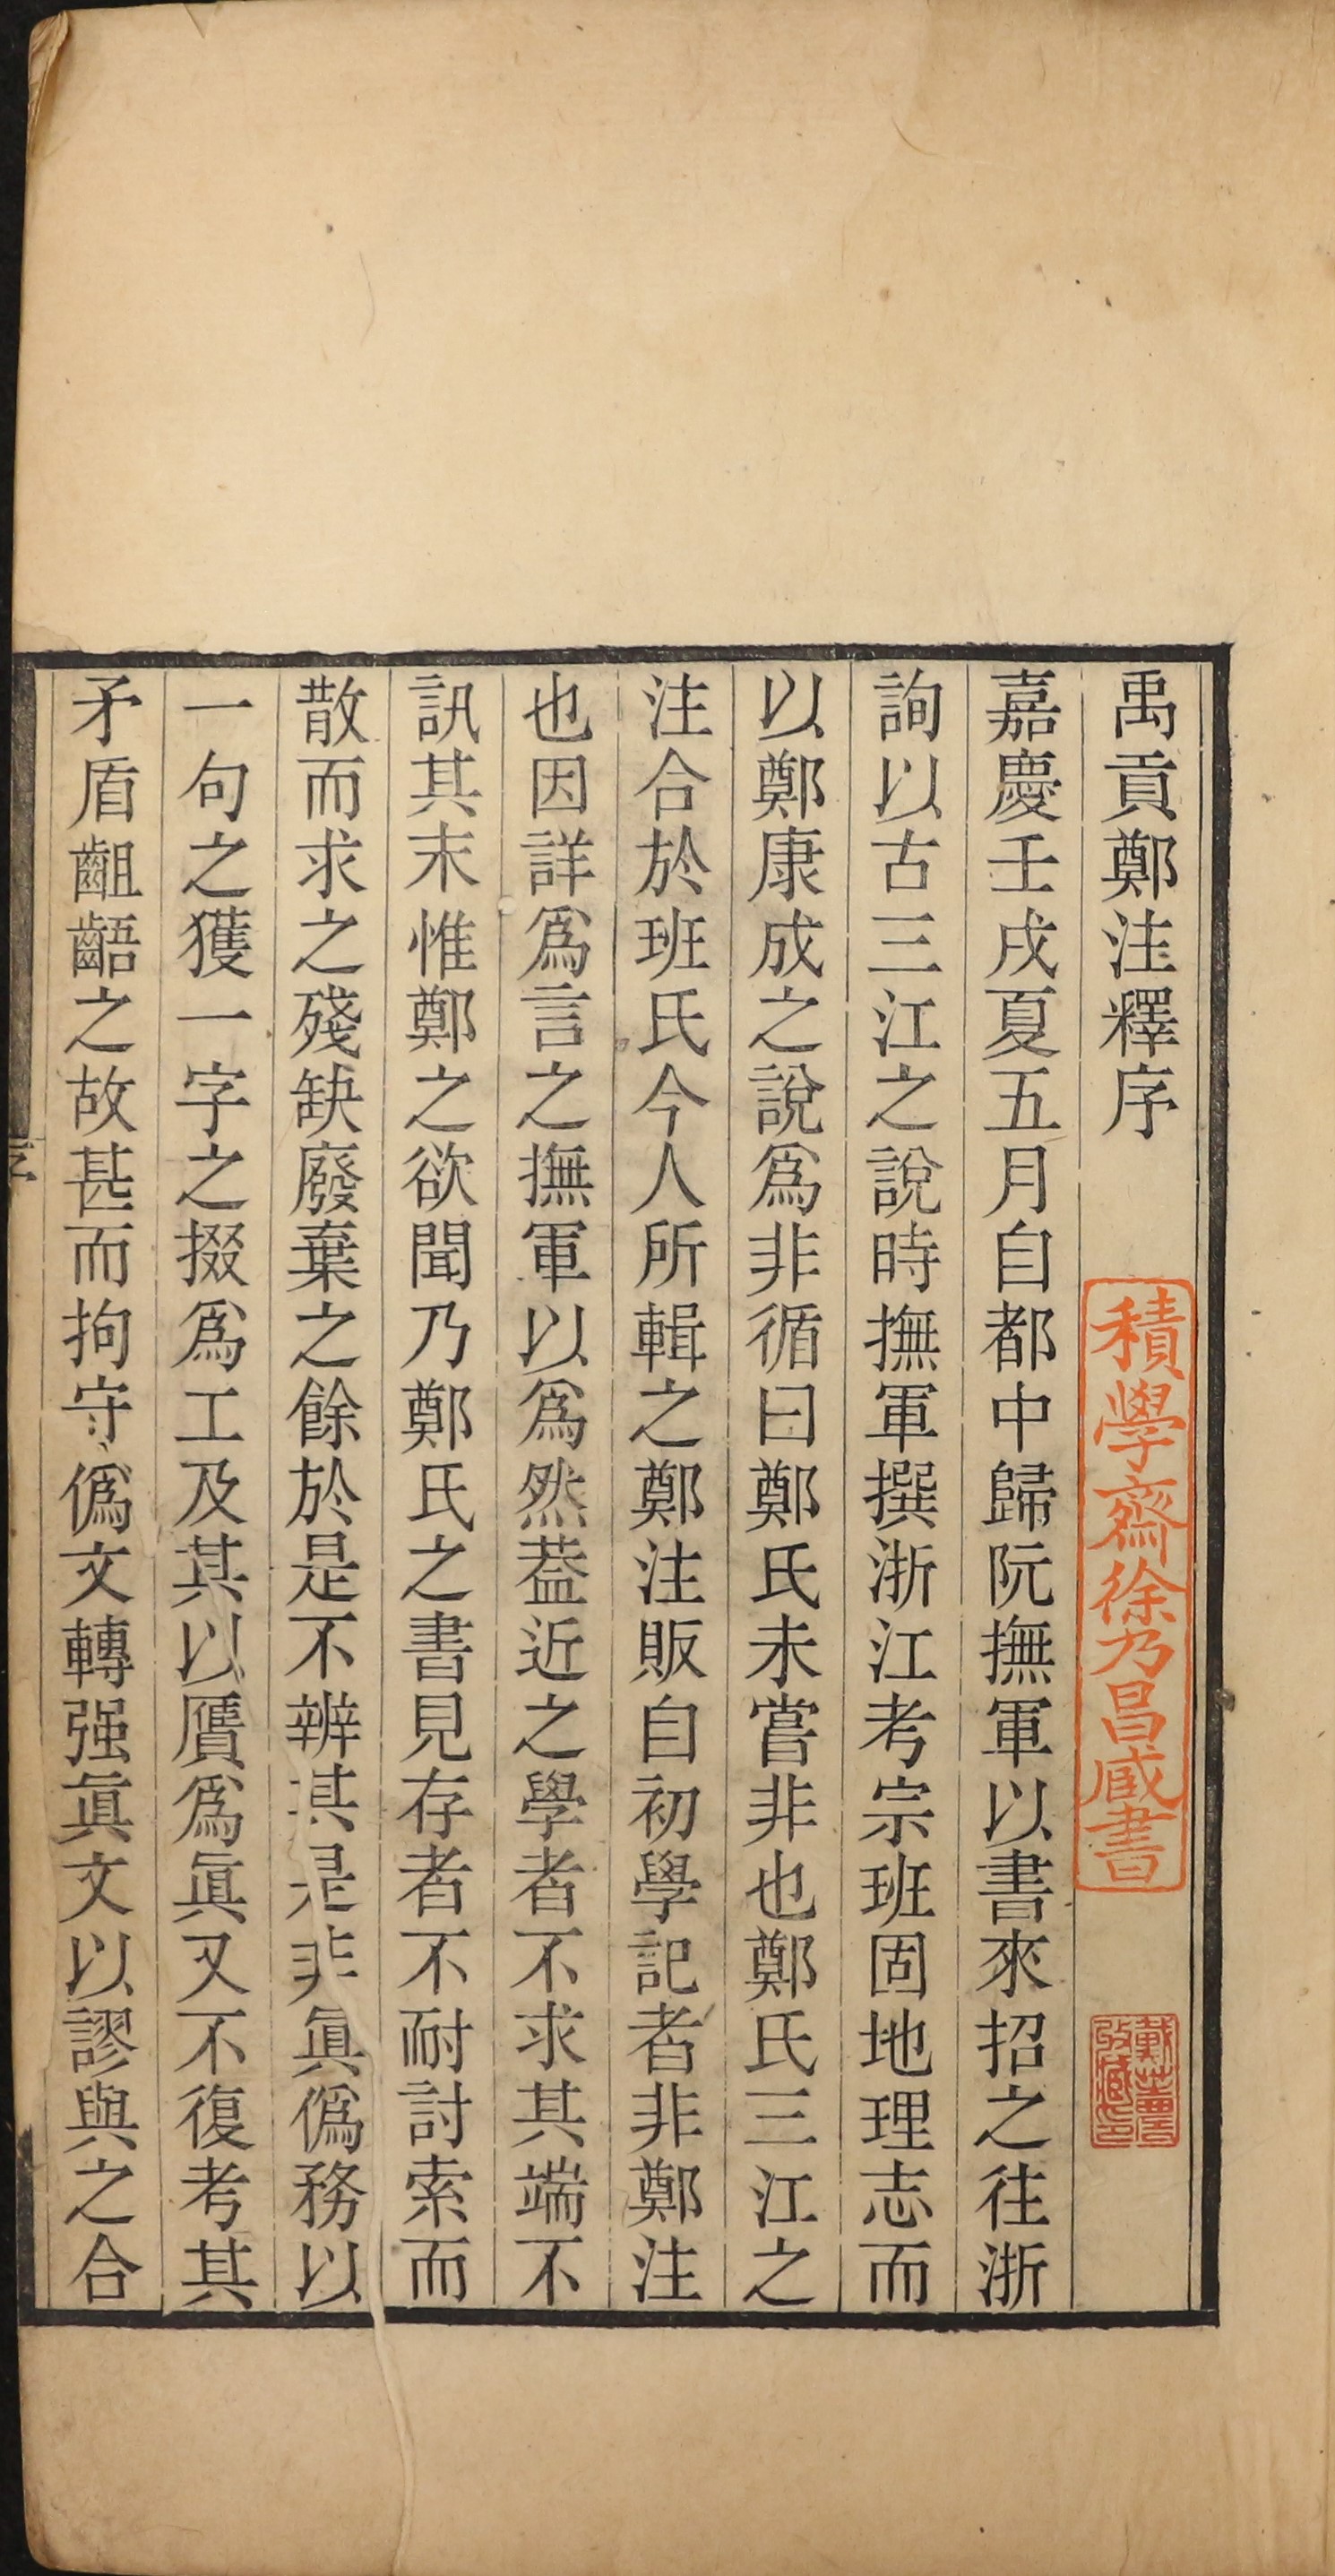 禹貢鄭注釋序
積學齋徐乃昌藏書
嘉慶壬戌夏五月自都中歸阮撫軍以書來招之往浙
詢以古三江之說時撫軍撰浙江考宗班固地理志而
以鄭康成之說爲非循曰鄭氏未嘗非也鄭氏三江之
注合於班氏今人所輯之鄭注販自初學記者非鄭注
也因詳爲言之撫軍以爲然葢近之學者不求其端不
訊其末惟鄭之欲聞乃鄭氏之書見存者不耐討索而
散而求之殘缺廢棄之餘於是不辨其是非眞僞務以
一句之獲一字之掇爲工及其以贋爲眞又不復考其
矛盾齟齬之故甚而拘守僞文轉强眞文以謬與之合